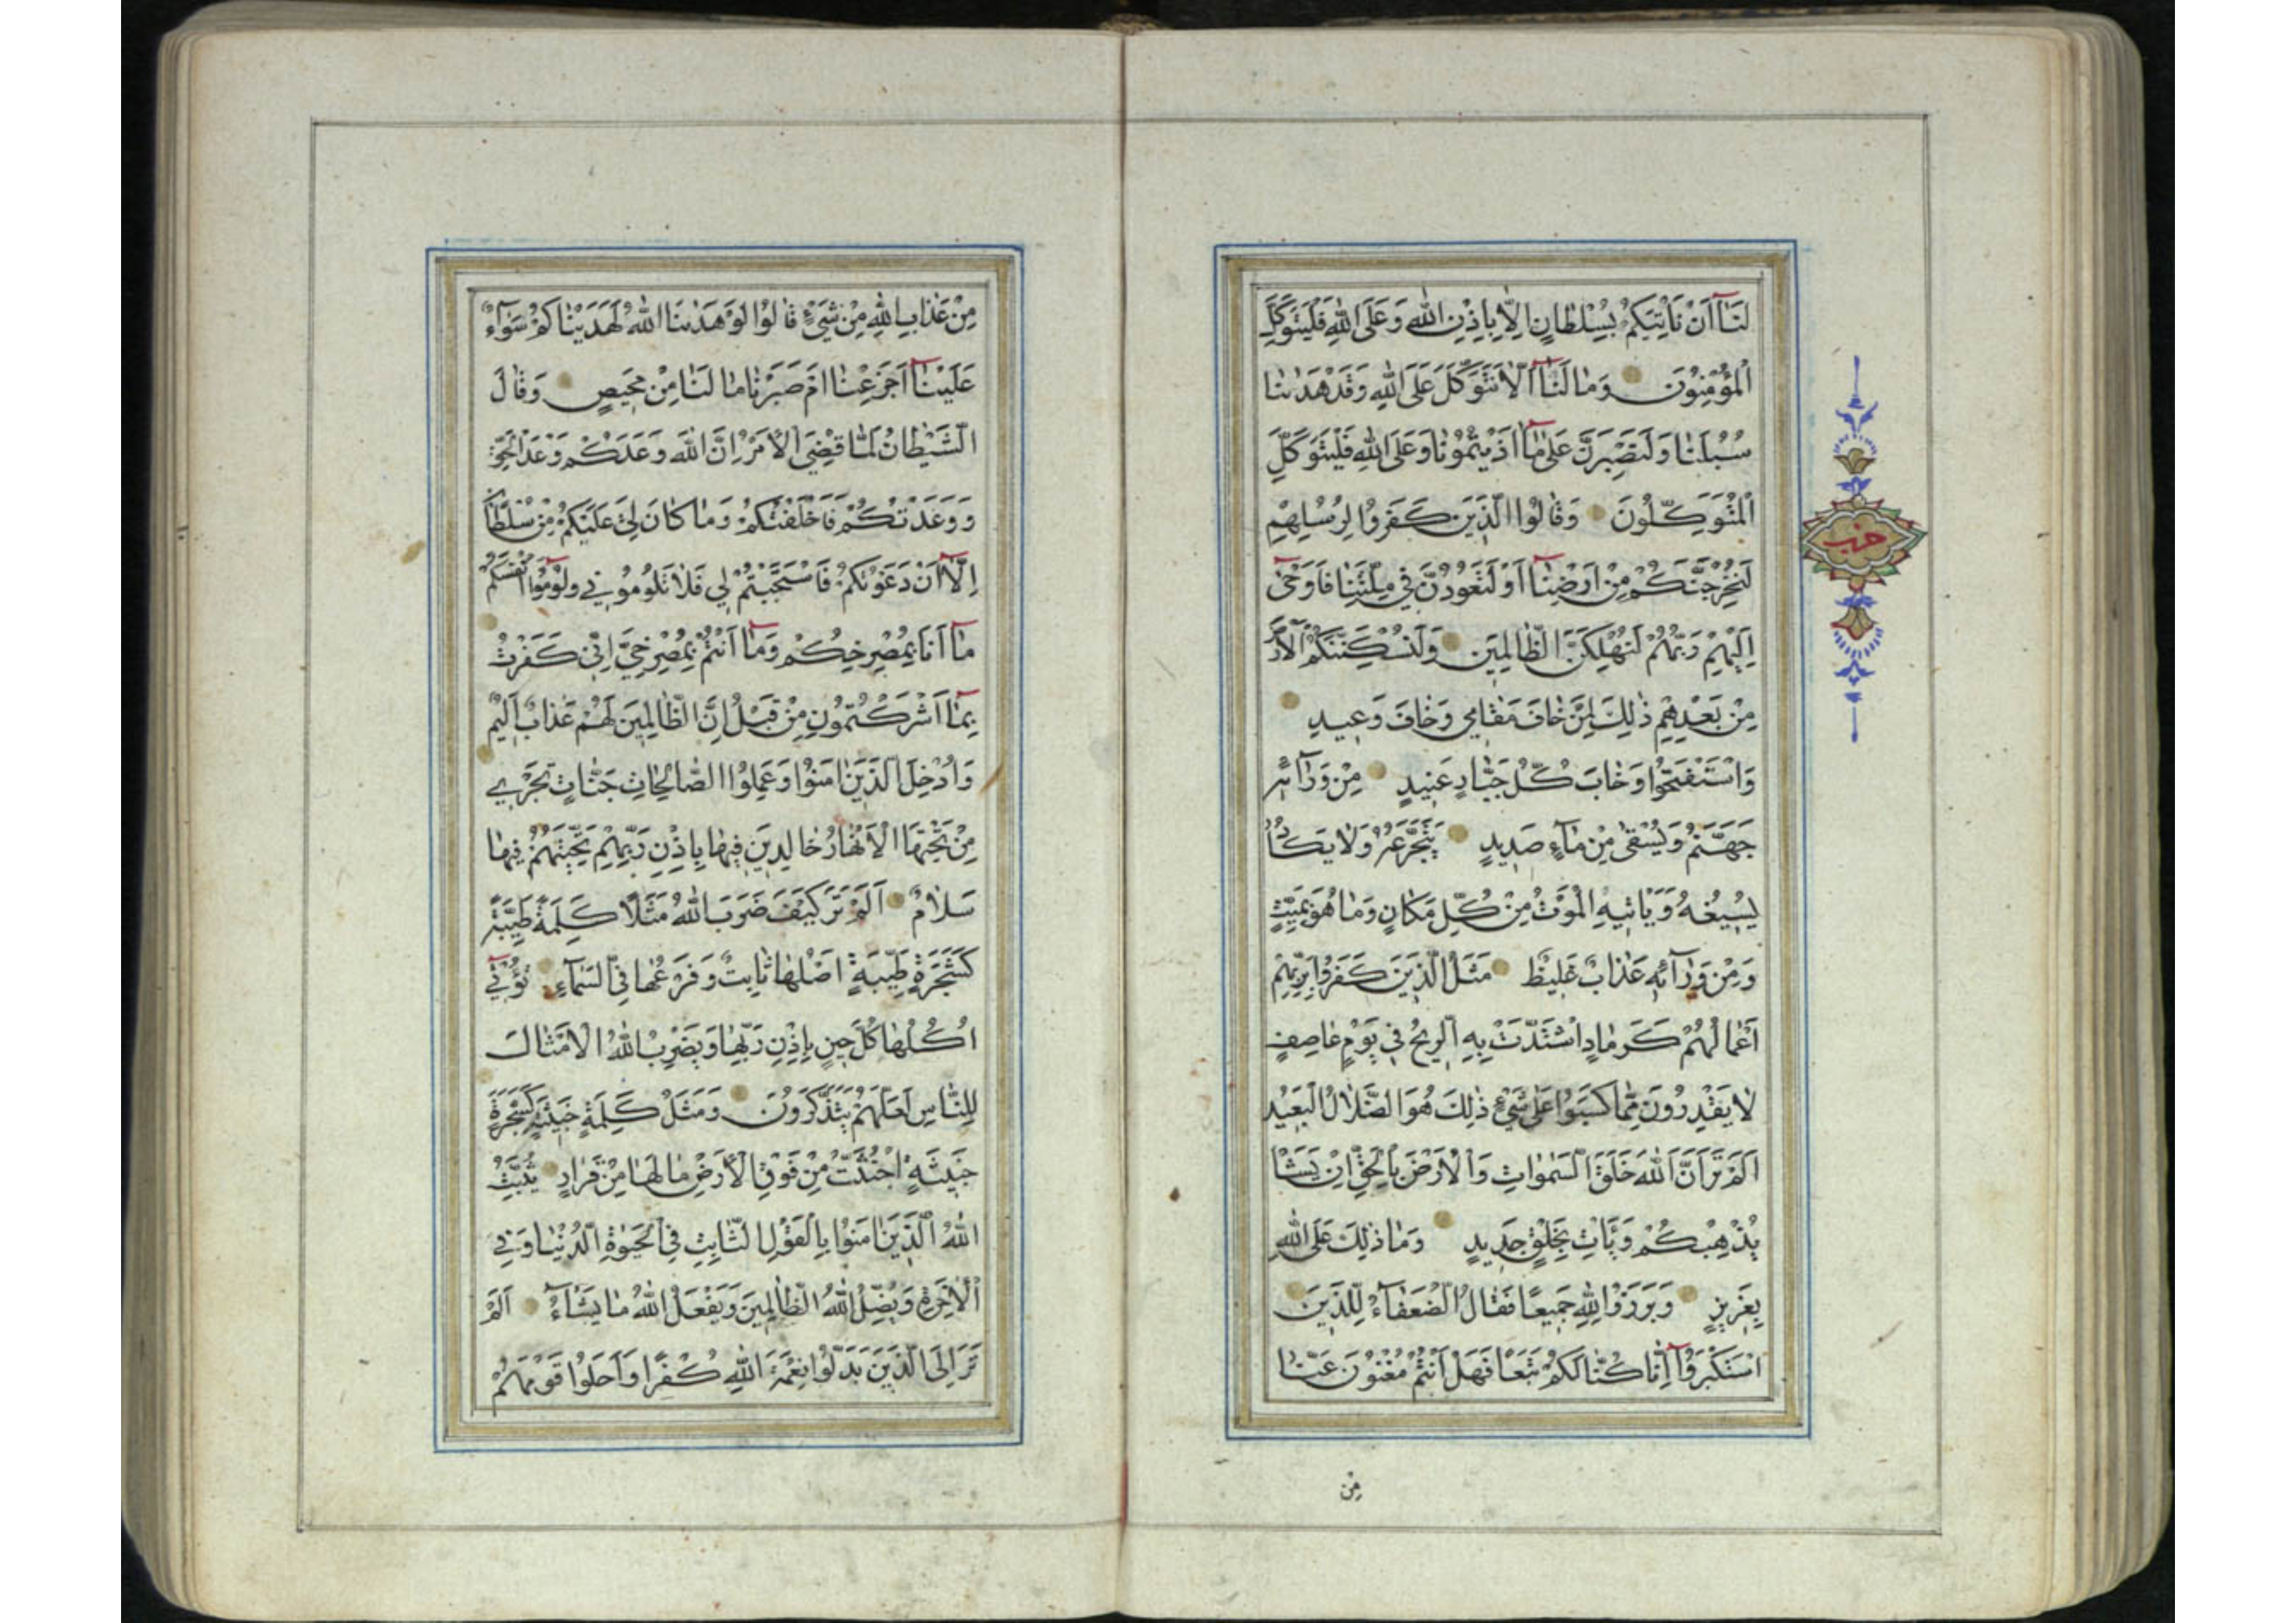 لَنَآ اَنْ نَاْتِيَكُمْ بِسُلْطَانٍ اِلَّا بِاِذْنِ اللّٰهِ وَعَلَى اللّٰهِ فَلْيَتَوَكَّلِ
الْمُؤْمِنُونَ وَمَا لَنَآ اَلَّا نَتَوَكَّلَ عَلَى اللّٰهِ وَقَدْ هَدٰينَا
سُبُلَنَا وَلَنَصْبِرَنَّ عَلٰى مَآ اٰذَيْتُمُونَا وَعَلَى اللّٰهِ فَلْيَتَوَكَّلِ
الْمُتَوَكِّلُونَ وَقَالُوا الَّذِينَ كَفَرُوا لِرُسُلِهِمْ
لَنُخْرِجَنَّكُمْ مِنْ اَرْضِنَآ اَوْ لَتَعُودُنَّ فِي مِلَّتِنَا فَاَوْحٰى
اِلَيْهِمْ رَبُّهُمْ لَنُهْلِكَنَّ الظَّالِمِينَ وَلَنُسْكِنَنَّكُمُ الْاَرْ
مِنْ بَعْدِهِمْ ذٰلِكَ لِمَنْ خَافَ مَقَامِي وَخَافَ وَعِيدِ
وَاسْتَفْتَحُوا وَخَابَ كُلُّ جَبَّارٍ عَنِيدٍ مِنْ وَرَآئِهِ
جَهَنَّمُ وَيُسْقٰى مِنْ مَآءٍ صَدِيدٍ يَتَجَرَّعُهُ وَلَا يَكَادُ
يُسِيغُهُ وَيَاْتِيهِ الْمَوْتُ مِنْ كُلِّ مَكَانٍ وَمَا هُوَ بِمَيِّتٍ
وَمِنْ وَرَآئِهِ عَذَابٌ غَلِيظٌ مَثَلُ الَّذِينَ كَفَرُوا بِرَبِّهِمْ
اَعْمَالُهُمْ كَرَمَادٍ اشْتَدَّتْ بِهِ الرِّيحُ فِي يَوْمٍ عَاصِفٍ
لَا يَقْدِرُونَ مِمَّا كَسَبُوا عَلٰى شَيْءٍ ذٰلِكَ هُوَ الضَّلَالُ الْبَعِيدُ
اَلَمْ تَرَ اَنَّ اللّٰهَ خَلَقَ السَّمٰوَاتِ وَالْاَرْضَ بِالْحَقِّ اِنْ يَشَاْ
يُذْهِبْكُمْ وَيَاْتِ بِخَلْقٍ جَدِيدٍ وَمَا ذٰلِكَ عَلَى اللّٰهِ
بِعَزِيزٍ وَبَرَزُوا لِلّٰهِ جَمِيعًا فَقَالَ الضُّعَفَآءُ لِلَّذِينَ
اسْتَكْبَرُوآ اِنَّا كُنَّا لَكُمْ تَبَعًا فَهَلْ اَنْتُمْ مُغْنُونَ عَنَّا
مِنْ
حزب
مِنْ عَذَابِ اللّٰهِ مِنْ شَيْءٍ قَالُوا لَوْ هَدٰينَا اللّٰهُ لَهَدَيْنَاكُمْ سَوَآءٌ
عَلَيْنَآ اَجَزِعْنَا اَمْ صَبَرْنَا مَا لَنَا مِنْ مَحِيصٍ وَقَالَ
الشَّيْطَانُ لَمَّا قُضِيَ الْاَمْرُ اِنَّ اللّٰهَ وَعَدَكُمْ وَعْدَ الْحَقِّ
وَوَعَدْتُكُمْ فَاَخْلَفْتُكُمْ وَمَا كَانَ لِيَ عَلَيْكُمْ مِنْ سُلْطَانٍ
اِلَّآ اَنْ دَعَوْتُكُمْ فَاسْتَجَبْتُمْ لِي فَلَا تَلُومُونِي وَلُومُوٓا اَنْفُسَكُمْ
مَآ اَنَا بِمُصْرِخِكُمْ وَمَآ اَنْتُمْ بِمُصْرِخِيَّ اِنِّي كَفَرْتُ
بِمَآ اَشْرَكْتُمُونِ مِنْ قَبْلُ اِنَّ الظَّالِمِينَ لَهُمْ عَذَابٌ اَلِيمٌ
وَاُدْخِلَ الَّذِينَ اٰمَنُوا وَعَمِلُوا الصَّالِحَاتِ جَنَّاتٍ تَجْرِي
مِنْ تَحْتِهَا الْاَنْهَارُ خَالِدِينَ فِيهَا بِاِذْنِ رَبِّهِمْ تَحِيَّتُهُمْ فِيهَا
سَلَامٌ اَلَمْ تَرَ كَيْفَ ضَرَبَ اللّٰهُ مَثَلًا كَلِمَةً طَيِّبَةً
كَشَجَرَةٍ طَيِّبَةٍ اَصْلُهَا ثَابِتٌ وَفَرْعُهَا فِي السَّمَآءِ تُؤْتِي
اُكُلَهَا كُلَّ حِينٍ بِاِذْنِ رَبِّهَا وَيَضْرِبُ اللّٰهُ الْاَمْثَالَ
لِلنَّاسِ لَعَلَّهُمْ يَتَذَكَّرُونَ وَمَثَلُ كَلِمَةٍ خَبِيثَةٍ كَشَجَرَةٍ
خَبِيثَةٍ اجْتُثَّتْ مِنْ فَوْقِ الْاَرْضِ مَا لَهَا مِنْ قَرَارٍ يُثَبِّتُ
اللّٰهُ الَّذِينَ اٰمَنُوا بِالْقَوْلِ الثَّابِتِ فِي الْحَيٰوةِ الدُّنْيَا وَفِي
الْاٰخِرَةِ وَيُضِلُّ اللّٰهُ الظَّالِمِينَ وَيَفْعَلُ اللّٰهُ مَا يَشَآءُ اَلَمْ
تَرَ اِلَى الَّذِينَ بَدَّلُوا نِعْمَةَ اللّٰهِ كُفْرًا وَاَحَلُّوا قَوْمَهُمْ